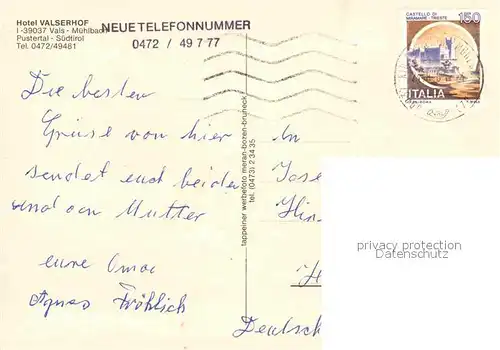 Hotel VALSERHOF
I-39037 Vals - Mühlbach
Pustertal - Südtirol
Tel. 0472/49481
NEUE TELEFONNUMMER
0472 / 49 7 77
CASTELLO DI
MIRAMARE - TRIESTE
150
ITALIA
Die besten
Grüsse von hier
sendet euch beiden
und den Mutter
eure Omac
Agnes Fröhlich
tappeiner werbefoto meran-bozen-bruneck
tel. (0473) 2 34 35
An
Jose
Hin
H
Deutsch
privacy protection
Datenschutz